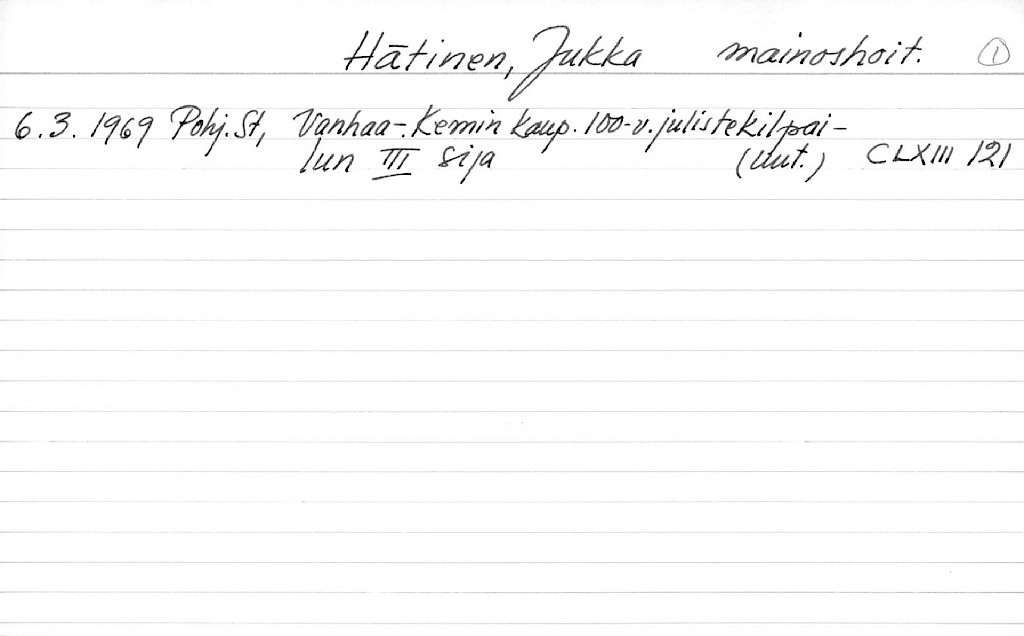 Hätinen, Jukka mainoshoit. 1
6.3. 1969 Pohj. St, Vanhaa-. Kemin kaup. 100-v. julistekilpai-
lun III sija (Uut.) CLXIII 121